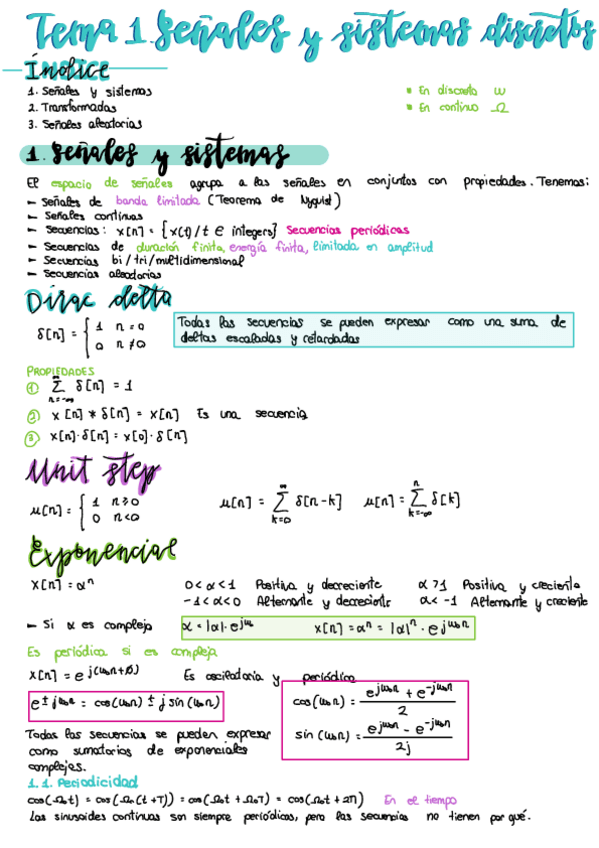 Tema 1. Señales y sistemas discretos
Índice
1. Señales y sistemas
2. Transformadas
3. Señales aleatorias
• En discreto ω
• En continuo Ω
1. Señales y sistemas
El espacio de señales agrupa a las señales en conjuntos con propiedades. Tenemos:
– Señales de banda limitada (Teorema de Nyquist)
– Señales continuas
– Secuencias: x[n] = {x(t)/t ∈ integers} Secuencias periódicas
– Secuencias de duración finita, energía finita, limitada en amplitud
– Secuencias bi/tri/multidimensional
– Secuencias aleatorias
Dirac delta
δ[n] = { 1 n=0
0 n≠0
Todas las secuencias se pueden expresar como una suma de
deltas escaladas y retardadas
PROPIEDADES
① ∞ Σ n=-∞ δ[n] = 1
② x[n] * δ[n] = x[n] Es una secuencia
③ x[n]·δ[n] = x[0]·δ[n]
Unit step
μ[n] = { 1 n≥0
0 n<0
μ[n] = ∞ Σ k=0 δ[n-k] μ[n] = n Σ k=-∞ δ[k]
Exponencial
x[n] = αⁿ
0<α<1 Positiva y decreciente α>1 Positiva y creciente
-1<α<0 Alternante y decreciente α<-1 Alternante y creciente
– Si α es complejo α = |α|·e^jω₀ x[n] = αⁿ = |α|ⁿ · e^jω₀n
Es periódica si es compleja
x[n] = e^j(ω₀n+φ) Es oscilatoria y periódica
e^±jω₀n = cos(ω₀n) ± j sin(ω₀n)
cos(ω₀n) = (e^jω₀n + e^-jω₀n) / 2
sin(ω₀n) = (e^jω₀n - e^-jω₀n) / 2j
Todas las secuencias se pueden expresar
como sumatorios de exponenciales
complejas.
1.1. Periodicidad
cos(Ω₀t) = cos(Ω₀(t+T)) = cos(Ω₀t + Ω₀T) = cos(Ω₀t + 2π) En el tiempo
Las sinusoides continuas son siempre periódicas, pero las secuencias no tienen por qué.